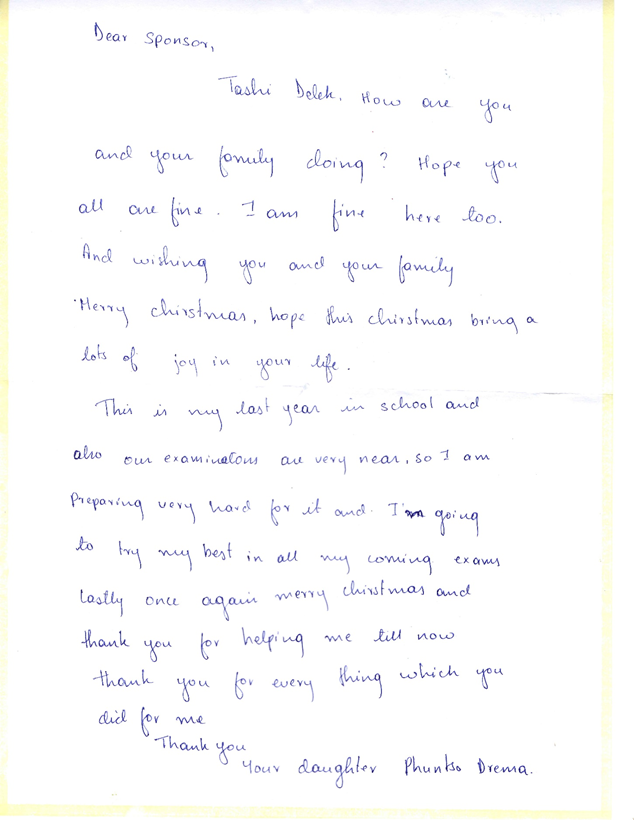 Dear Sponsor,
Tashi Delek. How are you
and your family doing? Hope you
all are fine. I am fine here too.
And wishing you and your family
Merry chirstmas, hope this chirstmas bring a
lots of joy in your life.
This is my last year in school and
also our examinatons are very near, so I am
Preparing very hard for it and. I'm going
to try my best in all my coming exams
lastly once again merry chirstmas and
thank you for helping me till now
thank you for every thing which you
did for me
Thank you
Your daughter Phuntso Drema.